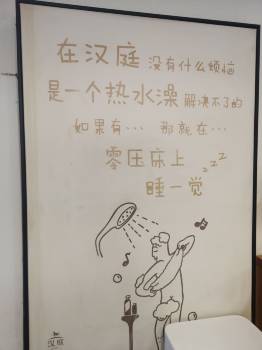 在汉庭 没有什么烦恼
是一个热水澡 解决不了的
如果有… 那就在…
零压床上 zzz
睡一觉
汉庭